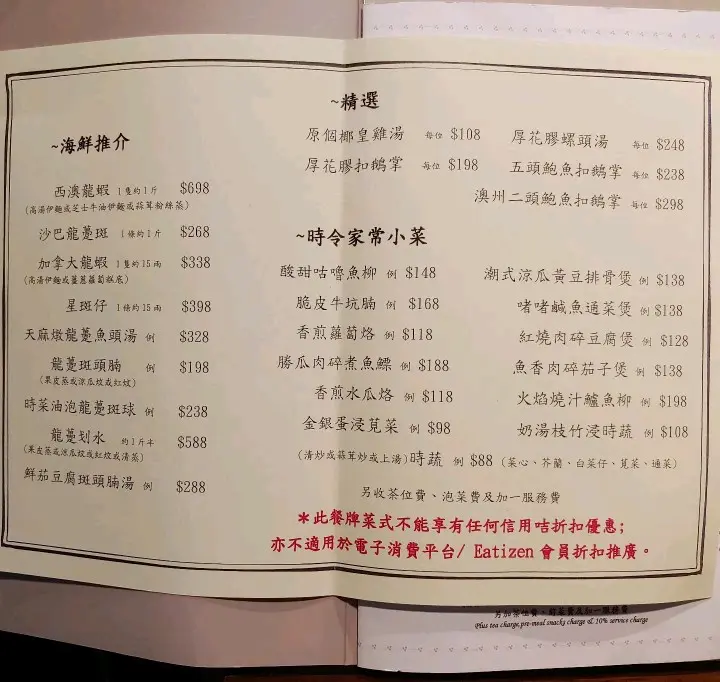 ~海鮮推介
西澳龍蝦 1隻約1斤 $698
(高湯伊麵或芝士牛油伊麵或蒜茸粉絲蒸)
沙巴龍躉斑 1條約1斤 $268
加拿大龍蝦 1隻約15兩 $338
(高湯伊麵或薑蔥蘿蔔糕底)
星斑仔 1條約15兩 $398
天麻燉龍躉魚頭湯 例 $328
龍躉斑頭腩 例 $198
(果皮蒸或涼瓜炆或紅炆)
時菜油泡龍躉斑球 例 $238
龍躉划水 約1斤半 $588
(果皮蒸或涼瓜炆或紅炆或清蒸)
鮮茄豆腐斑頭腩湯 例 $288
~精選
原個椰皇雞湯 每位 $108
厚花膠螺頭湯 每位 $248
厚花膠扣鵝掌 每位 $198
五頭鮑魚扣鵝掌 每位 $238
澳州二頭鮑魚扣鵝掌 每位 $298
~時令家常小菜
酸甜咕嚕魚柳 例 $148
潮式涼瓜黃豆排骨煲 例 $138
脆皮牛坑腩 例 $168
啫啫鹹魚通菜煲 例 $138
香煎蘿蔔烙 例 $118
紅燒肉碎豆腐煲 例 $128
勝瓜肉碎煮魚鰾 例 $188
魚香肉碎茄子煲 例 $138
香煎水瓜烙 例 $118
火焰燒汁鱸魚柳 例 $198
金銀蛋浸莧菜 例 $98
奶湯枝竹浸時蔬 例 $108
(清炒或蒜茸炒或上湯)時蔬 例 $88 (菜心、芥蘭、白菜仔、莧菜、通菜)
另收茶位費、泡菜費及加一服務費
*此餐牌菜式不能享有任何信用咭折扣優惠;
亦不適用於電子消費平台/ Eatizen 會員折扣推廣。
另加茶位費、前菜費及加一服務費
Plus tea charge,pre-meal snacks charge & 10% service charge